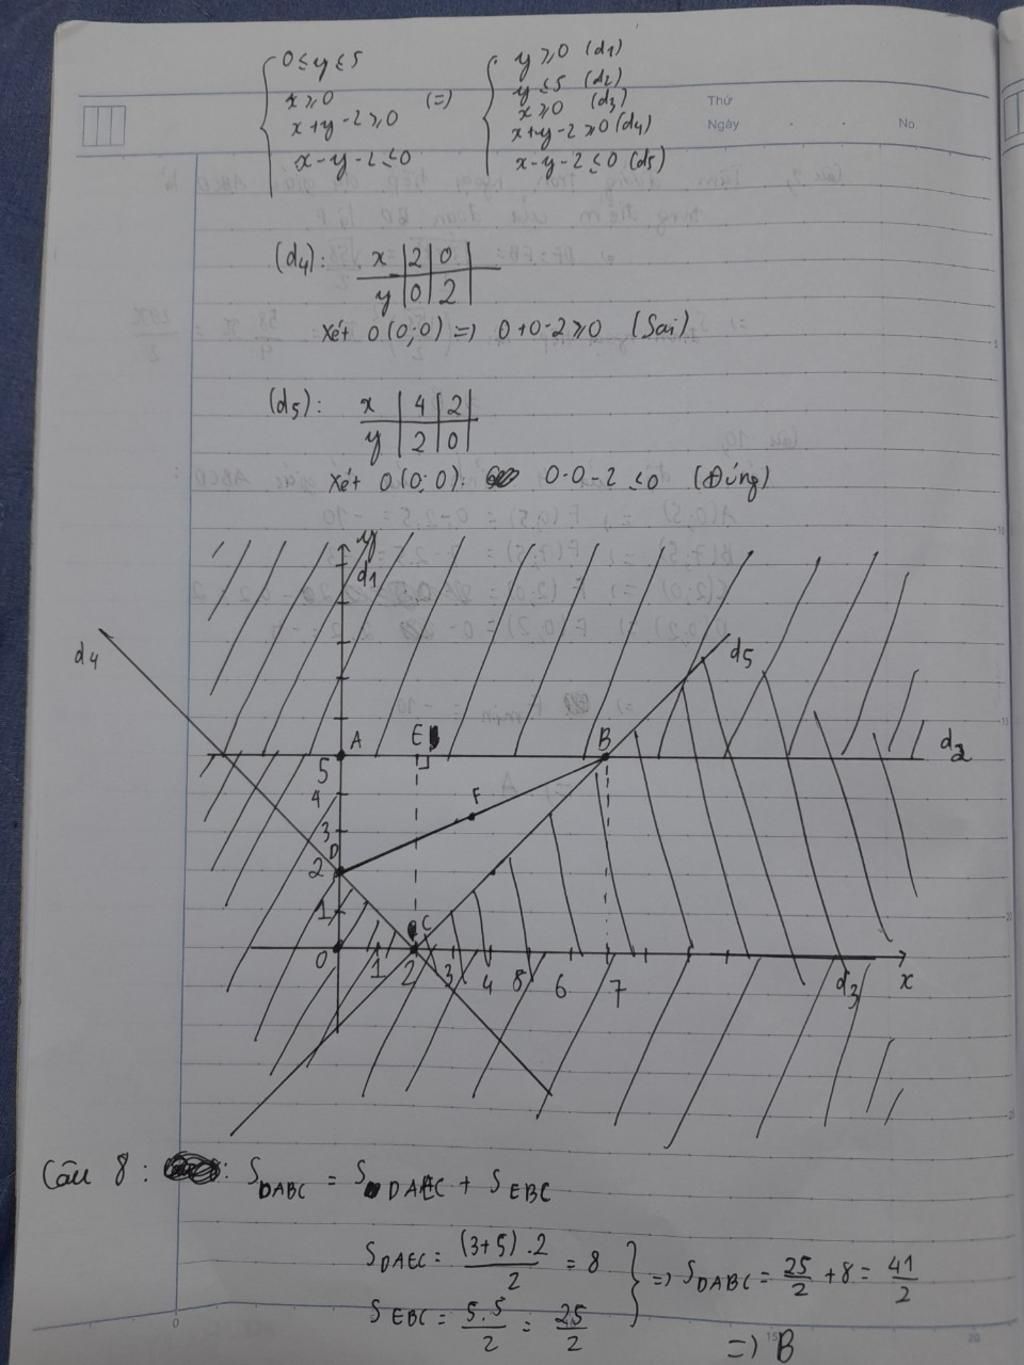 0 ≤ y ≤ 5
x ≥ 0
x + y - 2 ≥ 0
x - y - 2 ≤ 0
(=)
y ≥ 0 (d1)
y ≤ 5 (d2)
x ≥ 0 (d3)
x + y - 2 ≥ 0 (d4)
x - y - 2 ≤ 0 (d5)
Thứ
Ngày
No.
(d4): x | 2 | 0
y | 0 | 2
Xét O(0;0) =) 0+0-2 ≥ 0 (Sai)
(d5): x | 4 | 2
y | 2 | 0
Xét O(0;0): 0-0-2 ≤ 0 (Đúng)
y
d1
d4
d5
A E B d2
5
4
F
3
D
2
1
C
0 1 2 3 4 5 6 7 d3 x
Câu 8: : S DABC = S DAEC + S EBC
S DAEC = (3+5).2 / 2 = 8
S EBC = 5.5 / 2 = 25 / 2
=) S DABC = 25/2 + 8 = 41/2
=) B